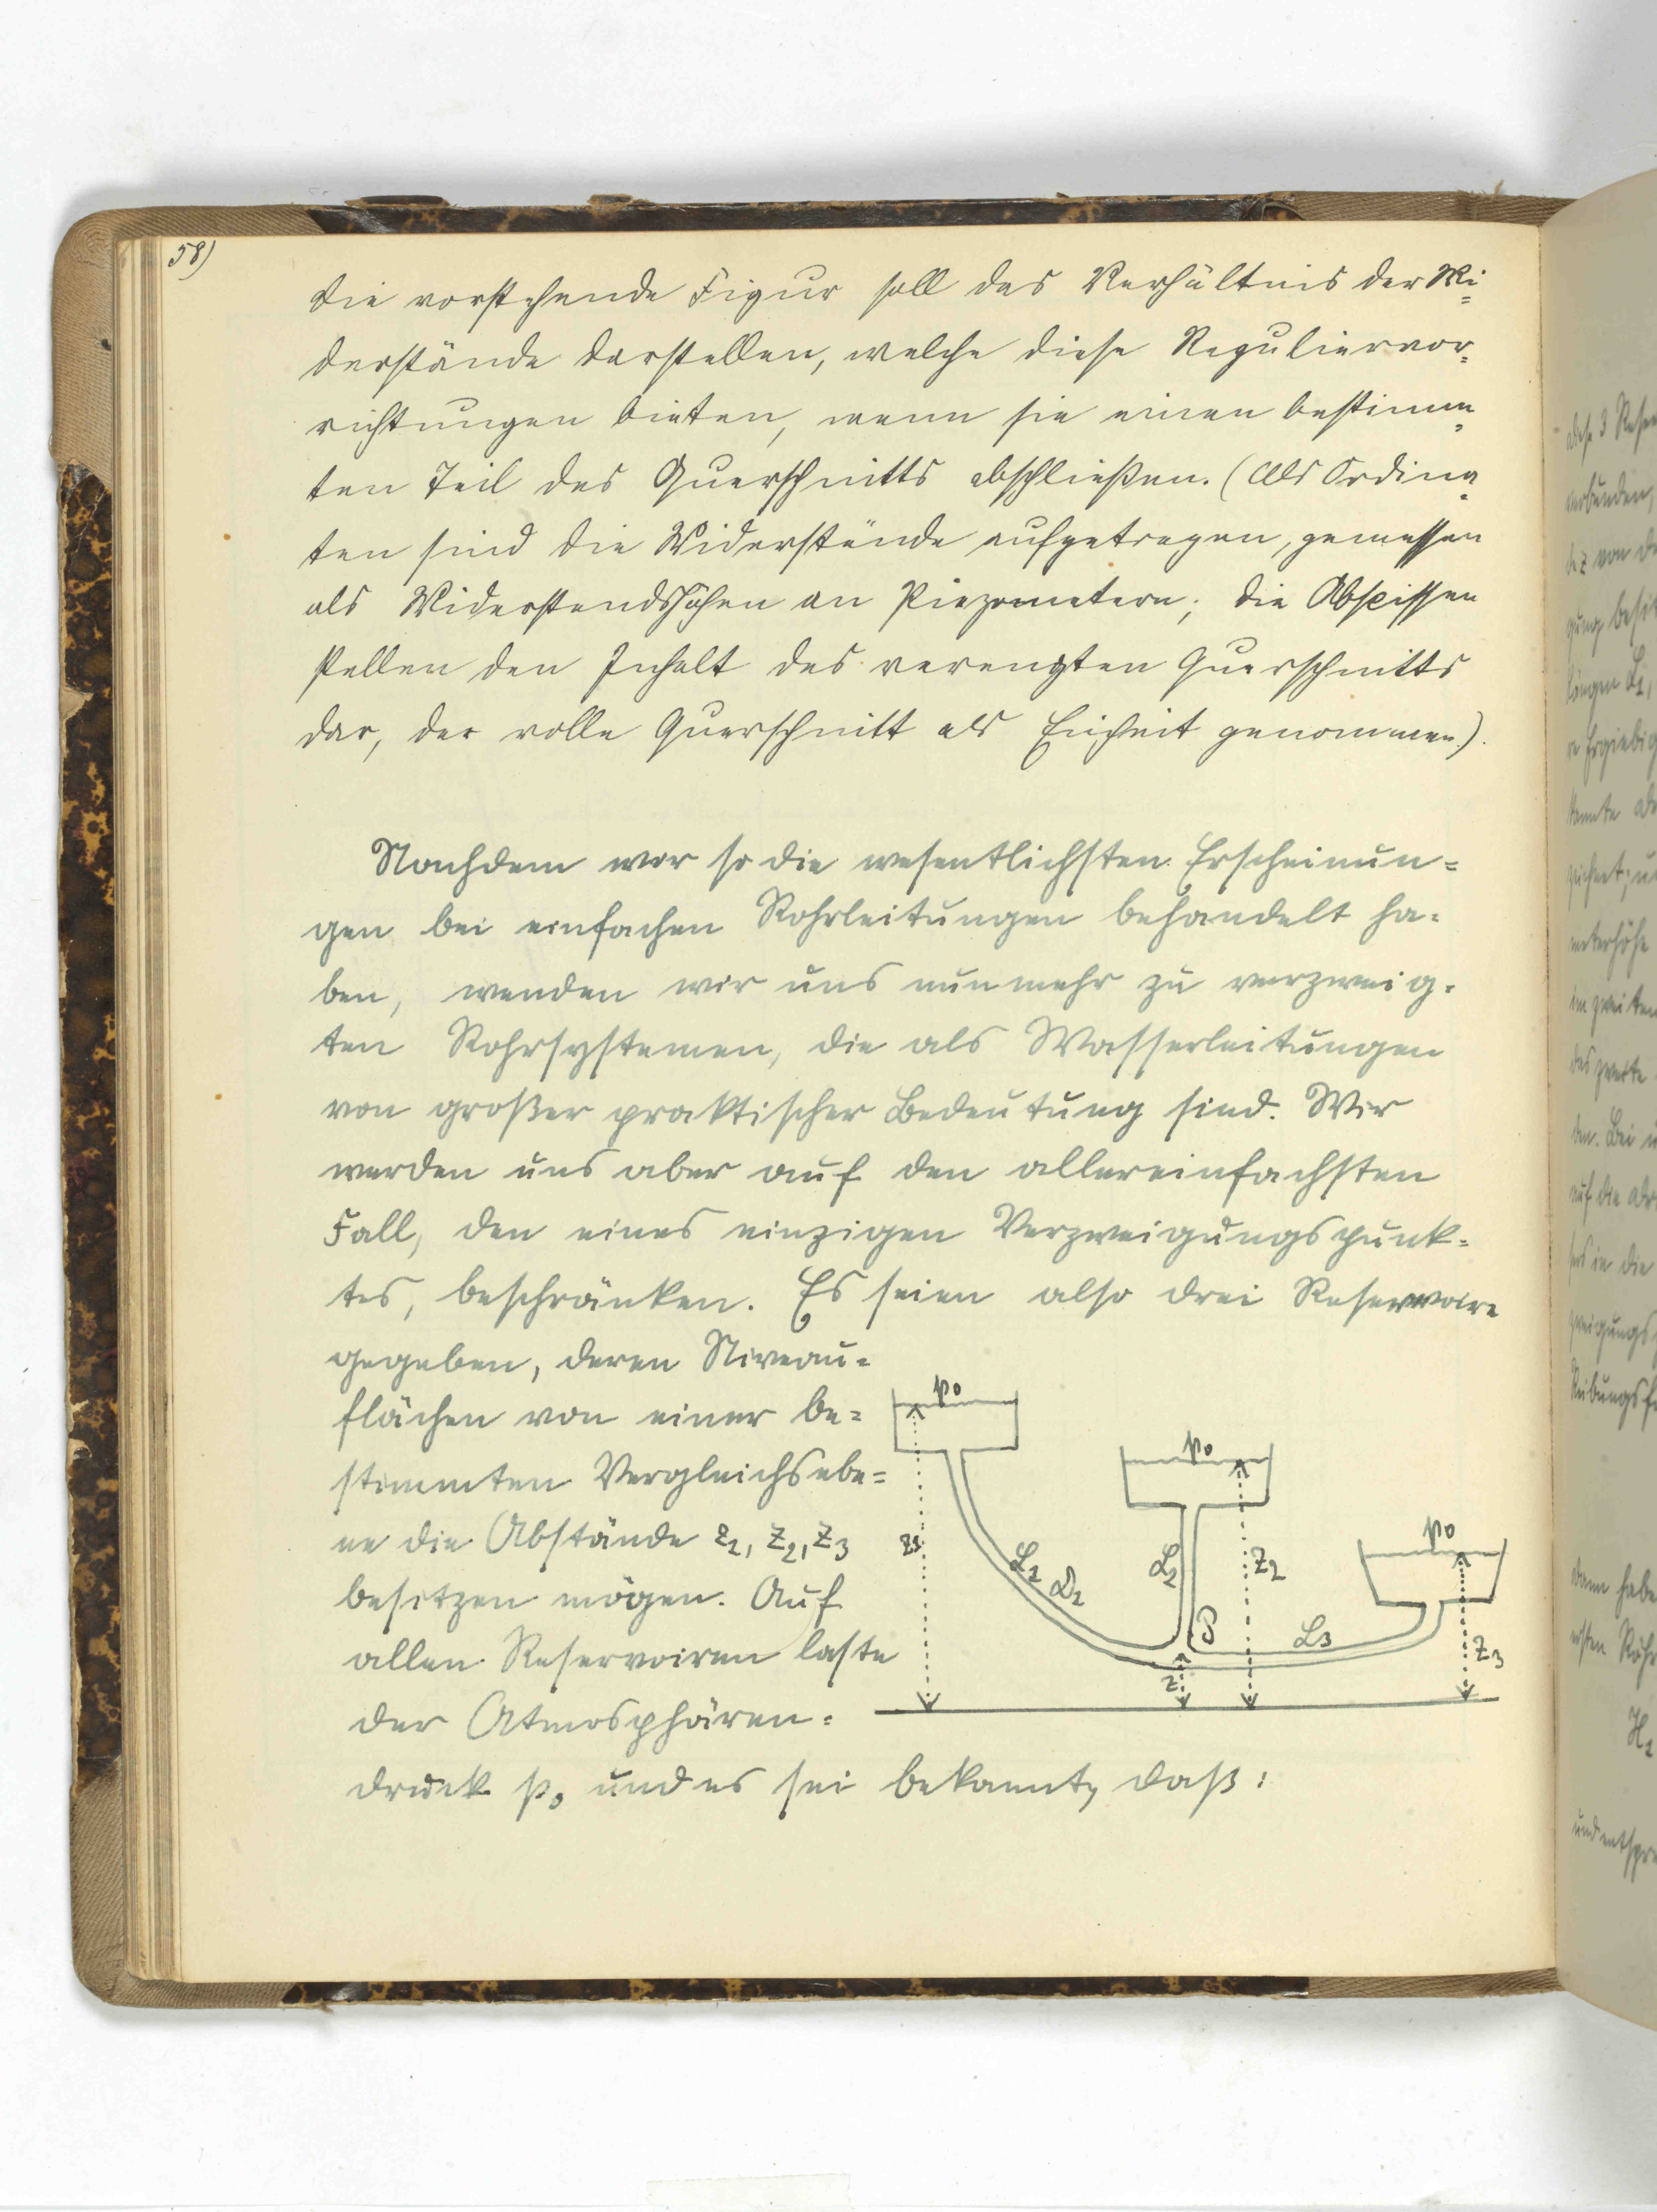 58)
Die vorstehende Figur soll das Verhältnis der Wi=
derstände darstellen, welche diese Reguliervor=
richtungen bieten, wenn sie einen bestimm=
ten Teil des Querschnitts abschließen. (Als Ordina=
ten sind die Widerstände aufgetragen, gemessen
als Widerstandshöhen an Piezometern; die Abscissen
stellen den Inhalt des verengten Querschnitts
dar, der volle Querschnitt als Einheit genommen).
Nachdem wir so die wesentlichsten Erscheinun=
gen bei einfachen Rohrleitungen behandelt ha=
ben, wenden wir uns nunmehr zu verzweig=
ten Rohrsystemen, die als Wasserleitungen
von großer praktischer Bedeutung sind. Wir
werden uns aber auf den allereinfachsten
Fall, den eines einzigen Verzweigungspunk=
tes, beschränken. Es seien also drei Reservoire
gegeben, deren Niveau=
flächen von einer be=
stimmten Vergleichsebe=
ne die Abstände z1, z2, z3
besitzen mögen. Auf
allen Reservoiren laste
der Atmosphären=
druck p0 und es sei bekannt, daß:
p0
p0
p0
z1
L1 D1
L2
z2
P
L3
z
z3
diese 3 Reser
verbunden,
von
Längen L1,
re Ergiebig
meterhöhe
im zweiten
das zweite
den. Bei
auf die
in die
zweigungs
Reibungs
dann habe
ersten Rohr
H1
und entspre